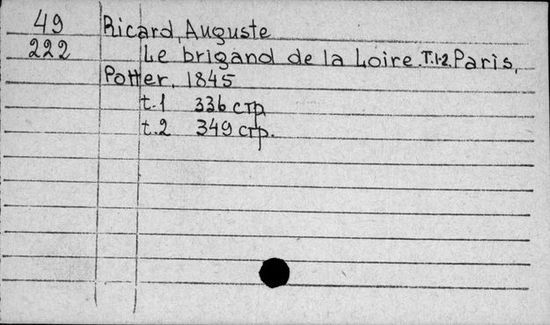 49 Ricard, Auguste
222 Le brigand de la Loire. T.1-2. Paris,
Potter, 1845
t.1 336 стр
t.2 349 стр.